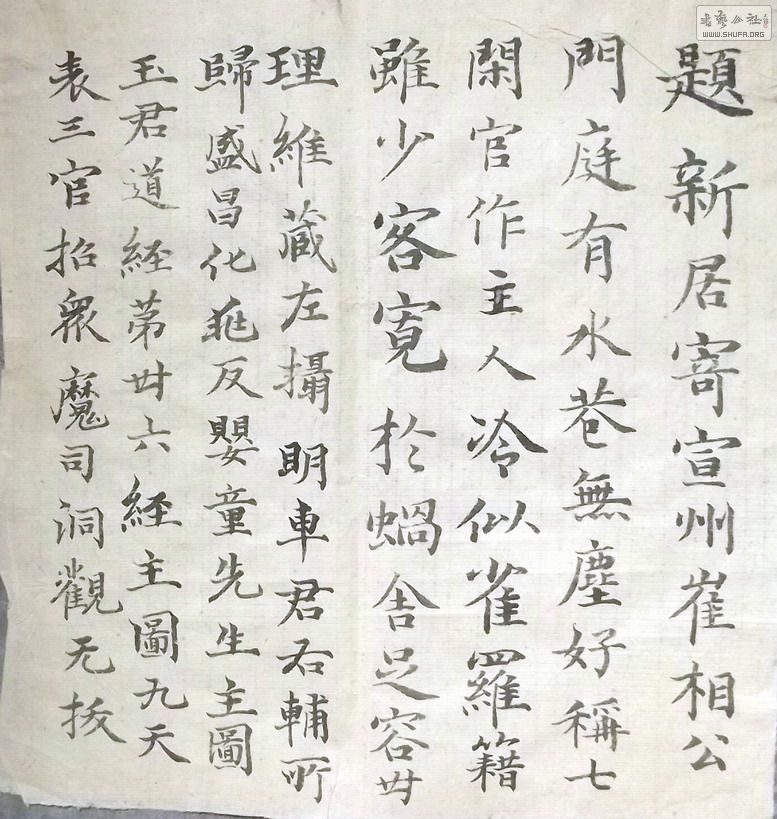 題新居寄宣州崔相公
門庭有水巷無塵好稱七
閑官作主人冷似雀羅籍
雖少客寬於蝸舍足容廿
理維蔵左攝明車君右輔所
歸盛昌化返嬰童先生主圖
玉君道経第卅六経主圖九天
表三官招衆魔司洞觀无拔
书艺公社
WWW.SHUFA.ORG